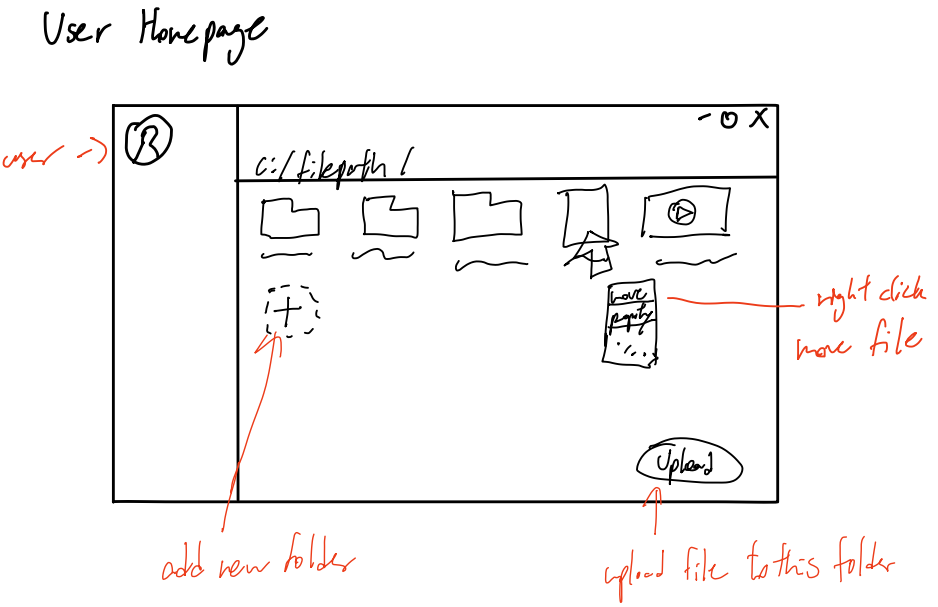 User Homepage
user
- O X
c:/filepath/
move
right click
move file
Upload
add new folder
upload file to this folder